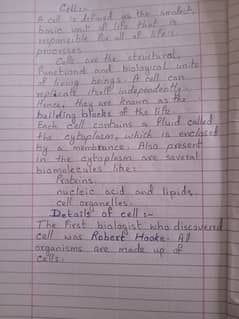 Cell:-
A cell is defined as the smallest
basic unit of life that is
responsible for all of life's
processes.
Cells are the structural,
functional and biological units
of living beings. A cell can
replicate itself independently.
Hence, they are known as the
building blocks of the life.
Each cell contains a fluid called
the cytoplasm, which is enclosed
by a membrance. Also present
in the cytoplasm are several
biomolecules like:
Proteins,
nucleic acid and lipids,
cell organelles.
Details of cell :-
The first biologist who discovered
cell was Robert Hooke. All
organisms are made up of
cells.